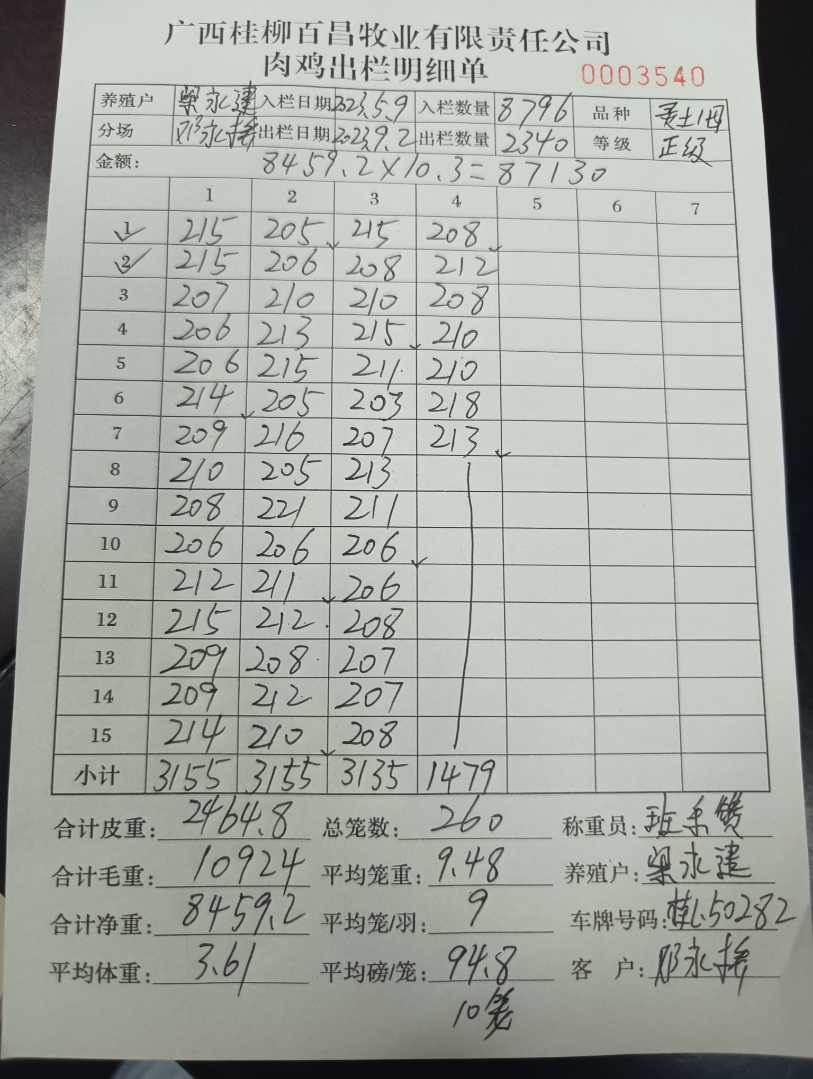 广西桂柳百昌牧业有限责任公司
肉鸡出栏明细单 0003540
养殖户 梁永建 入栏日期 2023.5.9 入栏数量 8796 品种 土1母
分场 邓永 出栏日期 2023.9.2 出栏数量 2340 等级 正级
金额: 8459.2×10.3=87130
1 2 3 4 5 6 7
1 215 205 215 208
2 215 206 208 212
3 207 210 210 208
4 206 213 215 210
5 206 215 211 210
6 214 205 203 218
7 209 216 207 213
8 210 205 213
9 208 221 211
10 206 206 206
11 212 211 206
12 215 212 208
13 209 208 207
14 209 212 207
15 214 210 208
小计 3155 3155 3135 1479
合计皮重: 2464.8 总笼数: 260 称重员: 班
合计毛重: 10924 平均笼重: 9.48 养殖户: 梁永建
合计净重: 8459.2 平均笼/羽: 9 车牌号码: 桂L50282
平均体重: 3.61 平均磅/笼: 94.8 客 户: 邓永
10笼